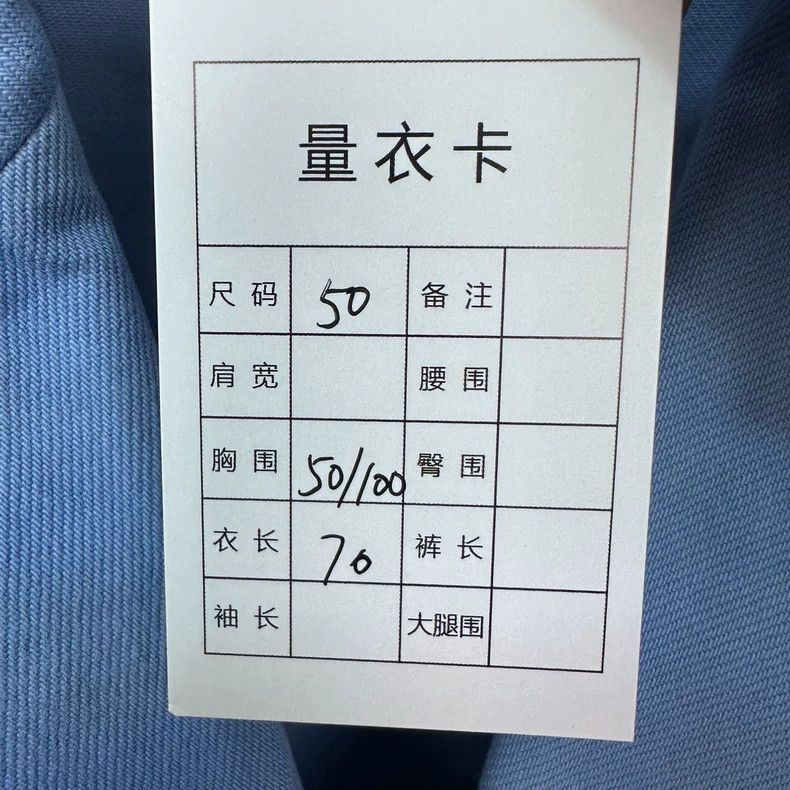 量衣卡
尺码 50 备注
肩宽 腰围
胸围 50/100 臀围
衣长 70 裤长
袖长 大腿围